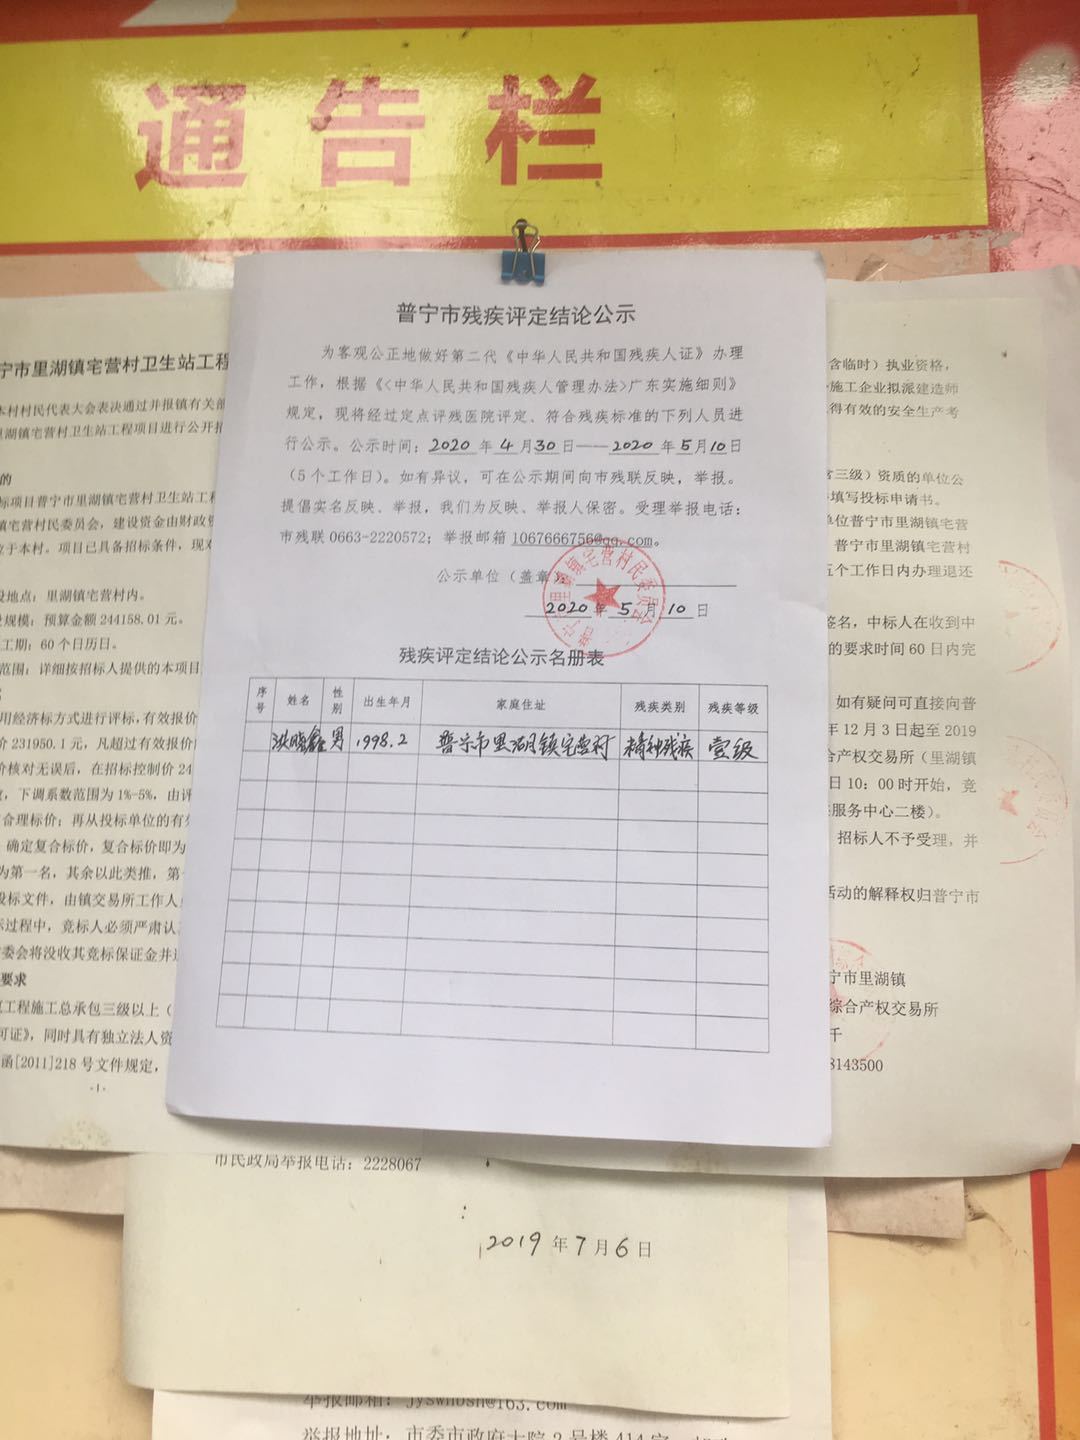 通告栏
普宁市残疾评定结论公示
为客观公正地做好第二代《中华人民共和国残疾人证》办理
工作，根据《<中华人民共和国残疾人管理办法>广东实施细则》
规定，现将经过定点评残医院评定、符合残疾标准的下列人员进
行公示。公示时间：2020年4月30日——2020年5月10日
（5个工作日）。如有异议，可在公示期间向市残联反映，举报。
提倡实名反映、举报，我们为反映、举报人保密。受理举报电话：
市残联0663-2220572；举报邮箱1067666756@qq.com。
公示单位（盖章）
里湖镇宅营村民委员会
2020年5月10日
残疾评定结论公示名册表
序号 姓名 性别 出生年月 家庭住址 残疾类别 残疾等级
洪晓鑫 男 1998.2 普宁市里湖镇宅营村 精神残疾 壹级
宁市里湖镇宅营村卫生站工程
本村村民代表大会表决通过并报镇有关部
里湖镇宅营村卫生站工程项目进行公开招
的
标项目普宁市里湖镇宅营村卫生站工程
镇宅营村民委员会，建设资金由财政资
位于本村。项目已具备招标条件，现对
设地点：里湖镇宅营村内。
规模：预算金额244158.01元。
工期：60个日历日。
范围：详细按招标人提供的本项目
用经济标方式进行评标，有效报价
价231950.1元，凡超过有效报价
价核对无误后，在招标控制价24
，下调系数范围为1%-5%，由评
合理标价；再从投标单位的有效
，确定复合标价，复合标价即为
为第一名，其余以此类推，第
投标文件，由镇交易所工作人
标过程中，竞标人必须严肃认
委会将没收其竞标保证金并
要求
工程施工总承包三级以上（
可证》，同时具有独立法人资
函[2011]218号文件规定，
-1-
含临时）执业资格，
施工企业拟派建造师
得有效的安全生产考
含三级）资质的单位公
填写投标申请书。
单位普宁市里湖镇宅营
普宁市里湖镇宅营村
五个工作日内办理退还
签名，中标人在收到中
的要求时间60日内完
如有疑问可直接向普
年12月3日起至2019
合产权交易所（里湖镇
日10：00时开始，竞
服务中心二楼）。
招标人不予受理，并
活动的解释权归普宁市
宁市里湖镇
综合产权交易所
千
8143500
市民政局举报电话：2228067
2019年7月6日
举报邮箱：jyswhbsh@163.com
举报地址：市委市政府大院2号楼414室